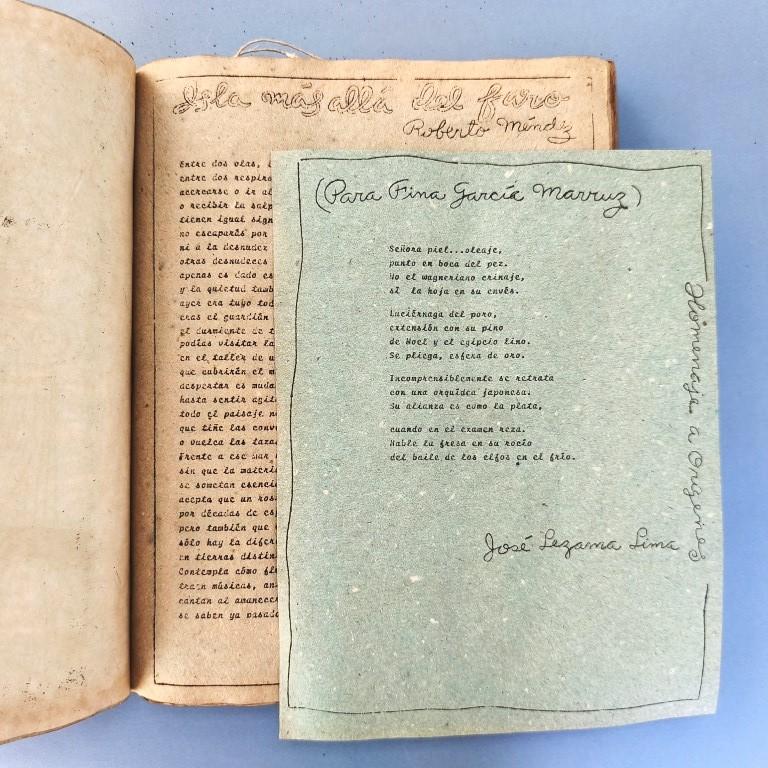 Isla más allá del faro
Roberto Méndez
Entre dos olas,
entre dos
acercarse o ir al
o recibir la
tienen igual
no escaparás por
ni a la desnudez
otras desnudeces
apenas es dado
y la quietud
ayer era tuyo
eras el guardián
el durmiente de
podías visitar
en el taller de
que cubrirán el
despertar es
hasta sentir
todo el paisaje
que tiñe las
o vuelca las
frente a ese mar
sin que la
se sometan
acepta que un
por décadas de
pero también que
sólo hay la
en tierras
Contempla cómo
traen músicas,
cantan al
se saben ya
(Para Fina García Marruz)
Señora piel...oleaje,
punto en boca del pez.
No el wagneriano crinaje,
sí la hoja en su envés.
Luciérnaga del poro,
extensión con su pino
de Noel y el egipcio lino.
Se pliega, esfera de oro.
Incomprensiblemente se retrata
con una orquídea japonesa.
Su alianza es como la plata,
cuando en el examen reza.
Hable la fresa en su rocío
del baile de los elfos en el frío.
José Lezama Lima
Homenaje a Orígenes